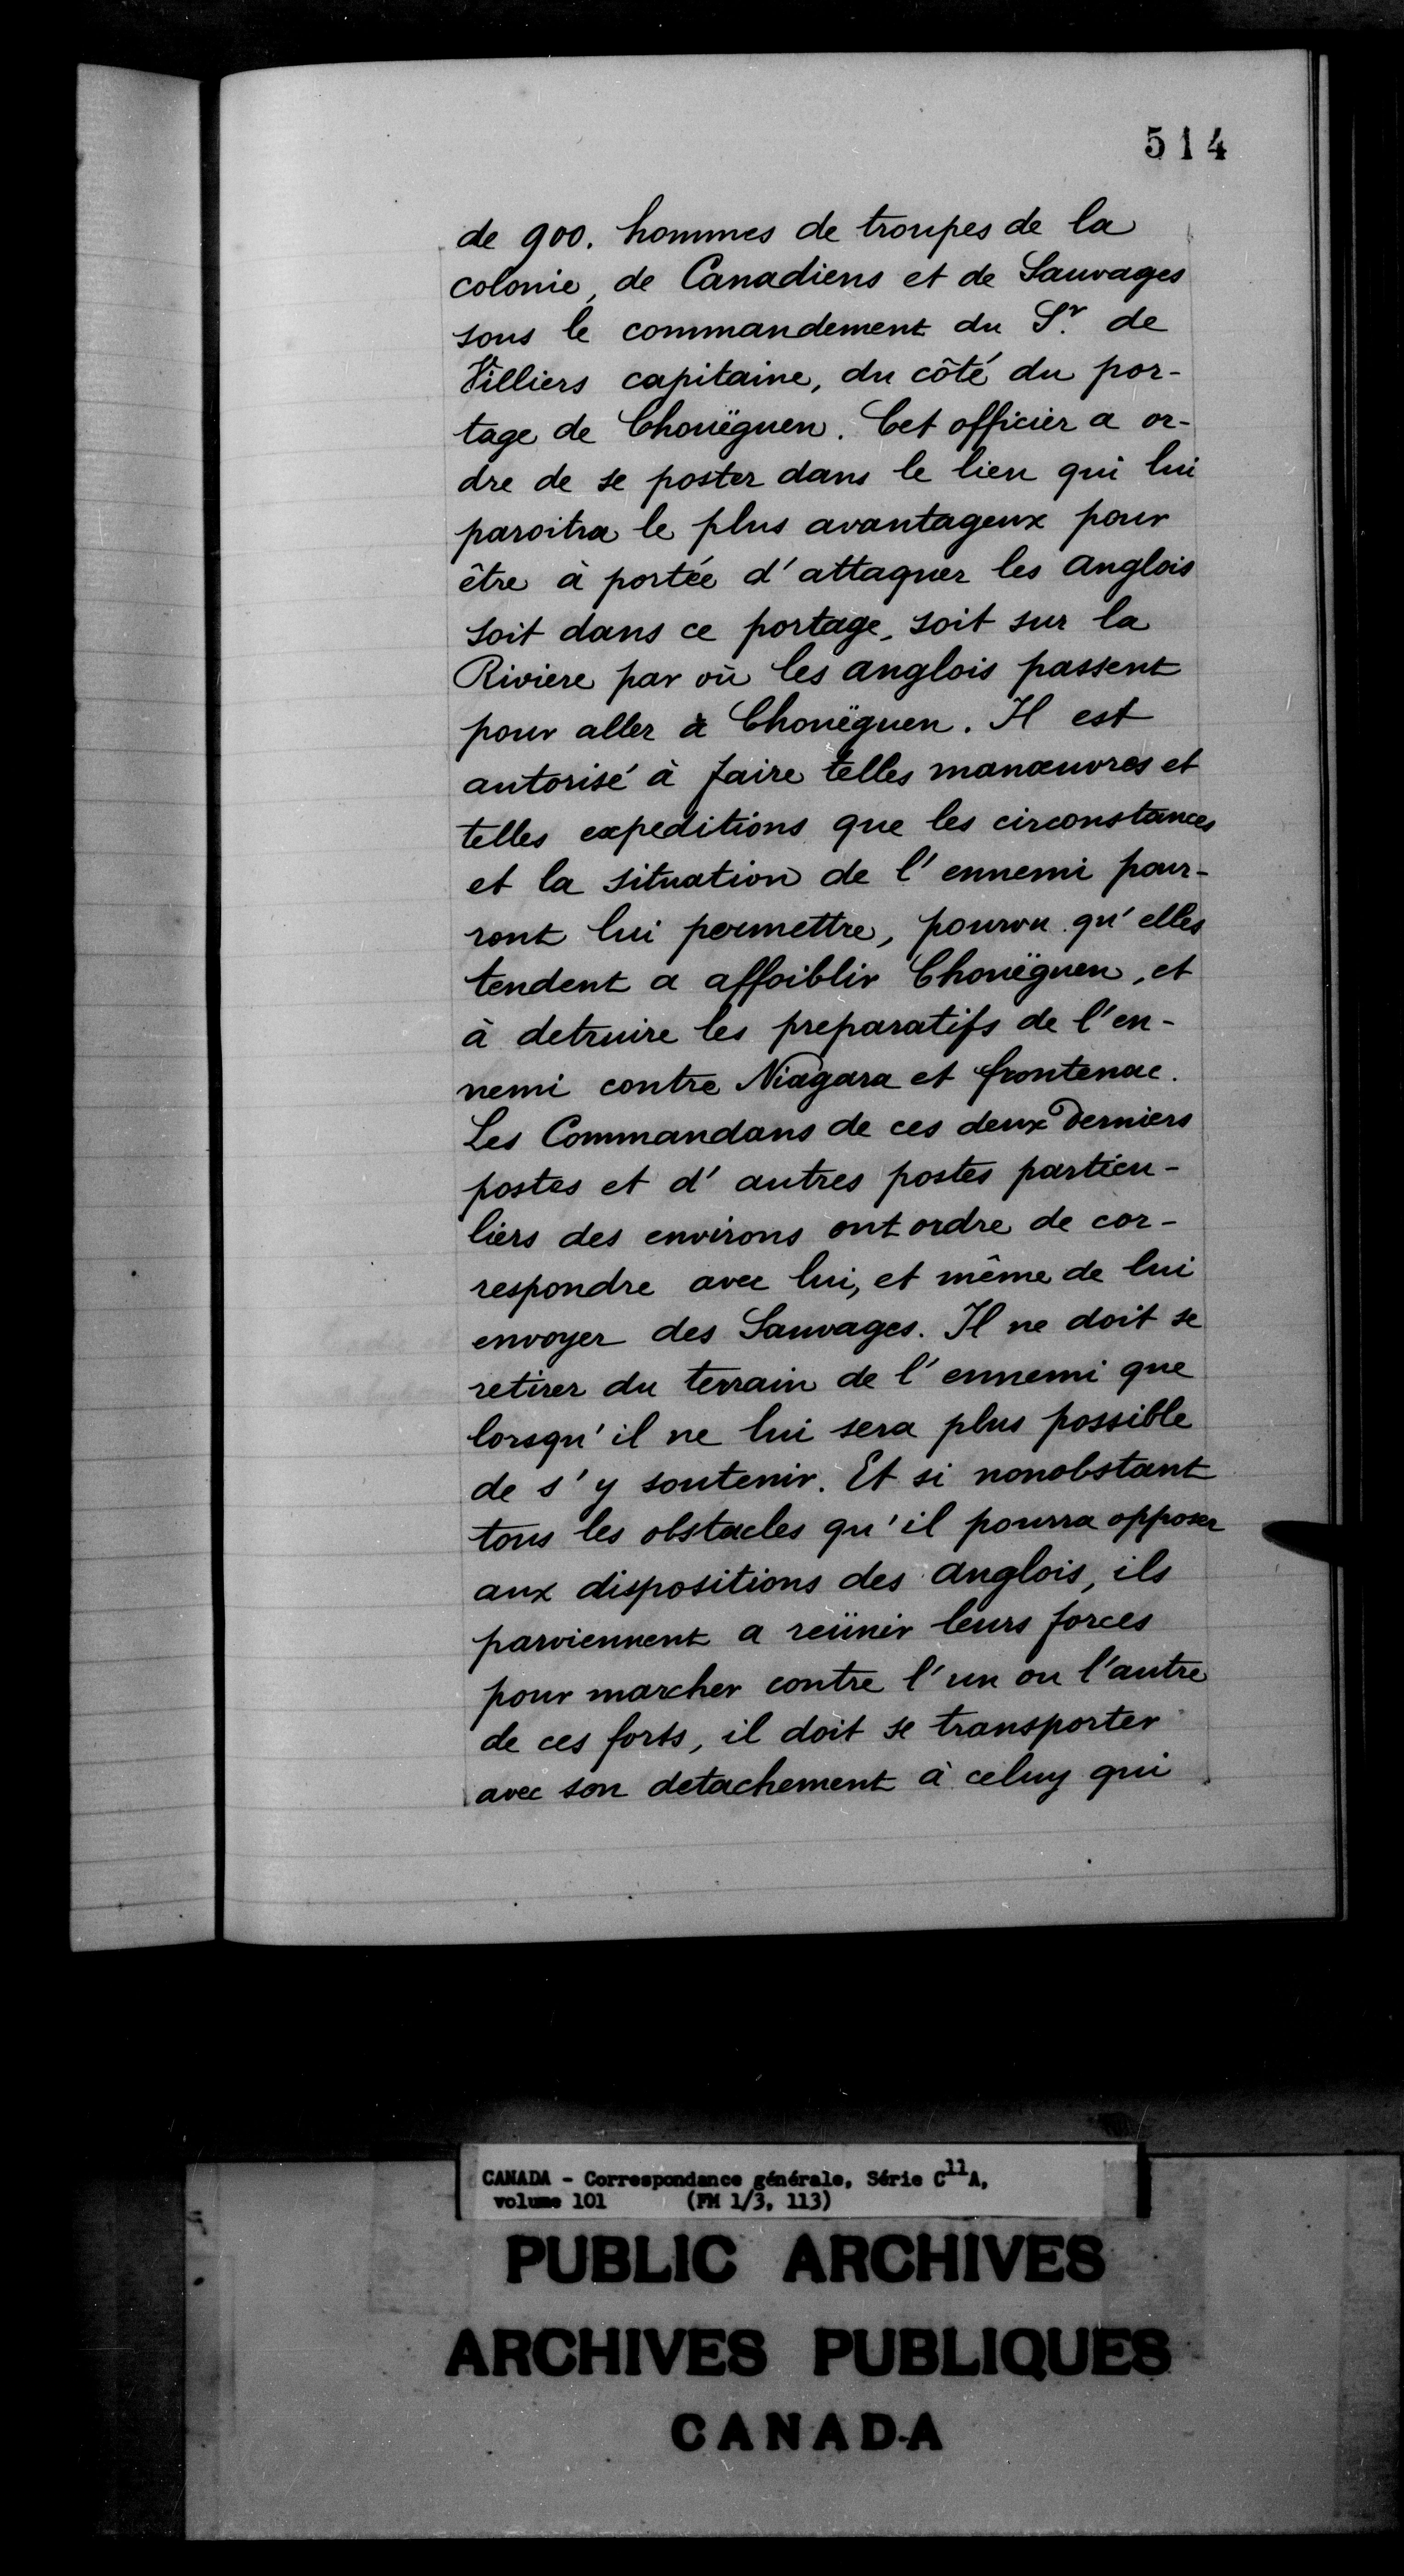 514
de 900. hommes de troupes de la
colonie, de Canadiens et de Sauvages
sous le commandement du Sr. de
Villiers capitaine, du côté du por-
tage de Chouëguen. Cet officier a or-
dre de se poster dans le lieu qui lui
paroitra le plus avantageux pour
être à portée d'attaquer les anglois
soit dans ce portage, soit sur la
Riviere par où les anglois passent
pour aller à Chouëguen. Il est
autorisé à faire telles manœuvres et
telles expeditions que les circonstances
et la situation de l'ennemi pour-
ront lui permettre, pourvu qu'elles
tendent a affoiblir Chouëguen, et
à detruire les preparatifs de l'en-
nemi contre Niagara et frontenac.
Les Commandans de ces deux Derniers
postes et d'autres postes particu-
liers des environs ont ordre de cor-
respondre avec lui, et même de lui
envoyer des Sauvages. Il ne doit se
retirer du terrain de l'ennemi que
lorsqu'il ne lui sera plus possible
de s'y soutenir. Et si nonobstant
tous les obstacles qu'il pourra opposer
aux dispositions des anglois, ils
parviennent a reünir leurs forces
pour marcher contre l'un ou l'autre
de ces forts, il doit se transporter
avec son detachement à celuy qui
CANADA - Correspondance générale, Série C11A,
volume 101 (FM 1/3, 113)
PUBLIC ARCHIVES
ARCHIVES PUBLIQUES
CANADA